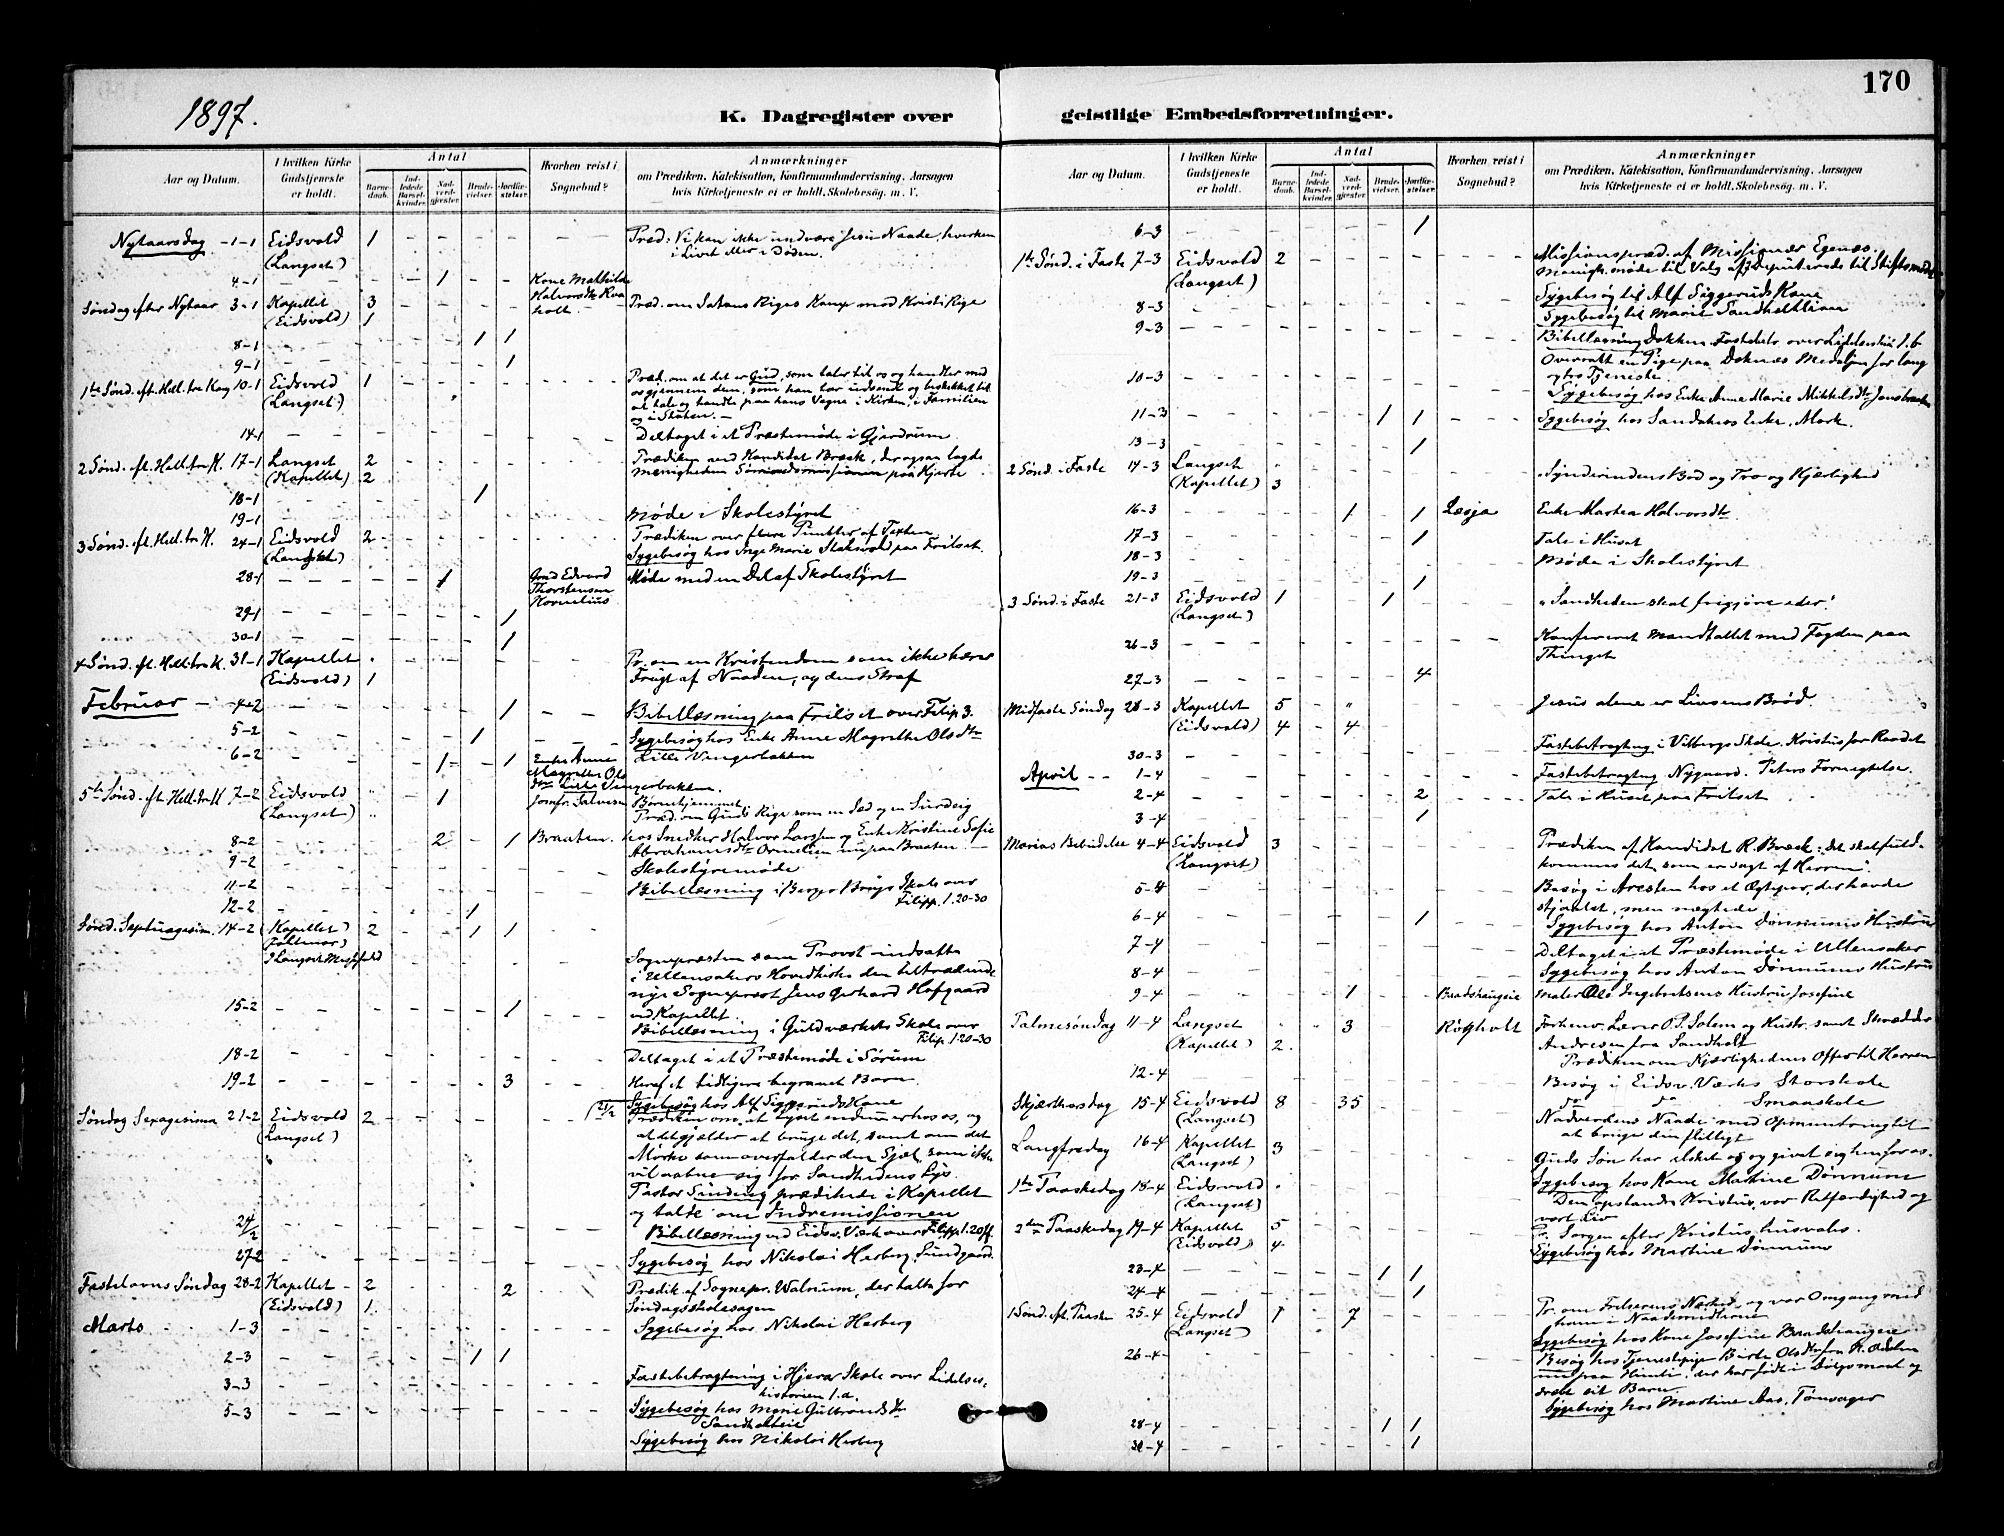 170
1897.
K. Dagregister over geistlige Embedsforretninger.
Aar og Datum.
I hvilken Kirke Gudstjeneste er holdt.
Antal
Barnedaab.
Indledede Barselkvinder.
Nadverdgjester
Brudevielser.
Jordfæstelser.
Hvorhen reist i Sognebud?
Anmærkninger
om Prædiken, Katekisation, Konfirmandundervisning, Aarsagen
hvis Kirketjeneste ei er holdt, Skolebesøg. m. V.
Nytaarsdag 1-1 Eidsvold 1 Præd: Vi kan ikke undvære Jesu Naade, hverken
(Langset) i Livet eller i Døden.
4-1 1 Kone Mathilde
Søndag efter Nytaar 3-1 Kapellet 3 Præd. om Satans Riges Kamp mod Kristi Rige
(Eidsvold) 1
8-1 1 1
9-1 1
1ste Sønd. eft. Hell. tre Kong 10-1 Eidsvold 1 Præd. om at det er Gud, som taler til os og handler med
(Langset) os gjennem dem, som han har udsendt og beskikket til
at tale og handle paa hans Vegne i Kirken, i Familien
og i Staten.
14-1 Deltaget i et Præstemøde i Gjerdrum
2 Sønd. eft. Hell. tre K. 17-1 Langset 2 Prædiken ved Kandidat Bræck, der ogsaa lagde
(Kapellet) 2 menigheden Sømandsmissionen paa Hjerte
18-1 1
19-1 Møde i Skolestyret
3 Sønd. eft. Hell. tre K. 24-1 Eidsvold 2 Prædiken over flere Punkter af Texten
(Langset) Sygebesøg hos Inge Marie Staksvold paa Frilset.
28-1 1 Gmd Edvard Møde med en Del af Skolestyret
Thorstensen
Kornelius
29-1 1
30-1 1
4 Sønd. eft. Hell. tre K. 31-1 Kapellet Pr. om en Kristendom som ikke bærer
(Eidsvold) 1 Frugt af Naaden, og dens Straf
Februar 4-2 1 Bibellæsning paa Frilset over Filip 3.
5-2 1 Sygebesøg hos Enke Anne Magrethe Olsdtr
6-2 1 1 Enke Anne Lille Vengerbakken
Magrethe Ols
dtr Lille Vengerbakken.
5te Sønd. eft. Hell. tre K 7-2 Eidsvold 1 Jomfr. Halvorsen Børnehjemmet
(Langset) Præd. om Guds Rige som en Sæd og en Surdeig
8-2 2 1 Braaten. hos Snedker Halvor Larssen og Enke Kristine Sofie
Abrahamsdtr Ornelien nu paa Braaten
9-2 Skolestyremøde
11-2 Bibellæsning i Berger Brugs Skole over
Filipp. 1.20-30
12-2 1
Sønd. Septuagesim. 14-2 Kapellet 2 1 1
I Langset Messefald
Sognepræsten som Provst indsatte
i Ullensakers Hovedkirke den tiltrædende
nye Sognepræst Jens Gerhard Hofgaard
15-2 1 ved Kapellet.
Bibellæsning i Guldverkets Skole over
Filip. 1.20-30
18-2 Deltaget i et Præstemøde i Sørum
19-2 3 Heraf et tidligere begravet Barn.
(21/2 Sygebesøg hos Alf Siggeruds Kone
Søndag Sexagesima 21-2 Eidsvold 2 Prædiken om, at Lyset endnu er hos os, og
(Langset) at det gjælder at bruge det, samt om det
Mørke som overfalder den Sjæl, som ikke
vil aabne sig for Sandhedens Lys.
Pastor Sinding prædikede i Kapellet
og talte om Indremissionen
24/2 Bibellæsning ved Eidsv. Værk over Filipp. 1.20ff.
27-2 Sygebesøg hos Nikolai Herberg, Sundgaard.
Fastelavns Søndag 28-2 Kapellet 2 2 Prædik. af Sognepr. Walnum, der talte for
(Eidsvold) 1 Søndagsskolesagen
Marts 1-3 Sygebesøg hos Nikolai Herberg
2-3 1 1
3-3 Fastebetragtning i Hjera Skole over Lidelses-
historien 1.a.
5-3 Sygebesøg hos Marie Gulbrandsdtr
Sygebesøg hos Nikolai Herberg
Aar og Datum.
I hvilken Kirke Gudstjeneste er holdt.
Antal
Barnedaab.
Indledede Barselkvinder.
Nadverdgjester
Brudevielser.
Jordfæstelser.
Hvorhen reist i Sognebud?
Anmærkninger
om Prædiken, Katekisation, Konfirmandundervisning, Aarsagen
hvis Kirketjeneste ei er holdt, Skolebesøg. m. V.
6-3 1
1ste Sønd. i Faste 7-3 Eidsvold 2 Missionspræd. af Missionær Egenæs.
(Langset) Menigh. møde til Valg af Deputerede til Stiftsmødet
8-3 Sygebesøg til Alf Siggeruds Kone
Sygebesøg til Marie Sandholtlien
9-3 Bibellæsning Dokken. Fastebetr. over Lidelseshist 1.b
10-3 Overrakt en Pige paa Doknæs Medaljen for lang
og tro Tjeneste.
Sygebesøg hos Enke Anne Marie Mikkelsdtr
11-3 1 1 Sygebesøg hos Sandakers Enke, Mork.
13-3 1
2 Sønd. i Faste 14-3 Langset
(Kapellet) 3 Synderindens Bod og Tro og Kjærlighed
16-3 1 1 Læsja Enke Marthea Halvorsdtr
17-3 1 Tale i Huset
18-3 Møde i Skolestyret
19-3 1
3 Sønd. i Faste 21-3 Eidsvold 1 1 "Sandheden skal frigjøre eder."
(Langset)
26-3 Konfereret Mandtallet med Fogden paa
Thinget
27-3 4
Midfaste Søndag 28-3 Kapellet 5 Jesus alene er Livsens Brød.
(Eidsvold) 4 4
30-3 Fastebetragtng i Vilbergs Skole, Kristus for Raadet
April 1-4 Fastebetragtng Nygaard. Peters Fornegtelse.
2-4 2 Tale i Huset paa Frilset
3-4 1
Marias Bebudelse 4-4 Eidsvold 3 Prædiken af Kandidat R. Bræck: "det skal fuld-
(Langset) kommes det, som er sagt af Herren".
5-4 Besøg i Aresten hos et Ægtepar, der havde
stjaalet, men nægtede
6-4 1 Sygebesøg hos Anton Dønnums Hustru
7-4 Deltaget i et Præstemøde i Ullensaker
8-4 Sygebesøg hos Anton Dønnums Hustru
9-4 1 Baadshaugeie Maler Ole Ingebretsens Hustru Josefine
Palmesøndag 11-4 Langset 3 Røgholt Forhenv. Lærer P.S. Solem og Hustr. samt Skrædder
(Kapellet) 2 Andresen fra Sandholt
Prædiken om Kjærlighedens Offer til Herren
12-4 Besøg i Eidsv. Værks Storskole
do do Smaaskole
Skjærthorsdag 15-4 Eidsvold 8 35 Nadverdens Naade med Opmuntring til
(Langset) at bruge den flittigt
Langfredag 16-4 Kapellet 3 Guds Søn har elsket os og givet sig hen for os.
(Langset) Sygebesøg hos Kone Martine Dønnum
1ste Paaskedag 18-4 Eidsvold Den opstandne Kristus, vor Retfærdighed og
(Langset) vort Liv
2den Paaskedag 19-4 Kapellet 5 Pr. Sorgen efter Kristus, husvales.
(Eidsvold) 4 Sygebesøg hos Martine Dønnum
23-4 1 1
24-4 1
1 Sønd. eft. Paaske 25-4 Eidsvold 1 7 Pr. om Frelserens Nærhed og vor Omgang med
(Langset) ham i Naademidlerne
Sygebesøg hos Kone Josefine Baadshaugeie
26-4 Besøg hos Tjenestepige Birte Olsdtr fra N. Odalen
nu paa Himli, der har født i Dulgsmaal og
dræbt sit Barn
Sygebesøg hos Martine Aas, Tønsager
28-4 1 1
30-4 1